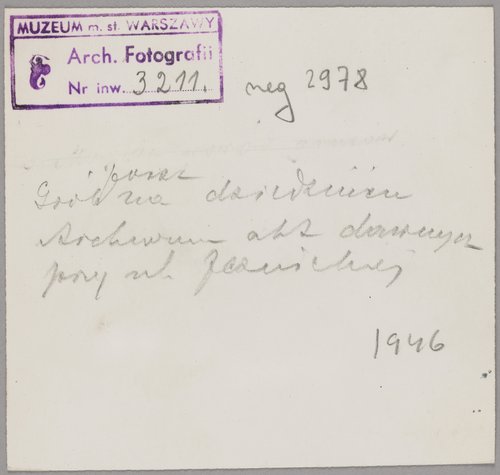 MUZEUM m. st. WARSZAWY
Arch. Fotografii
Nr inw. 3211.
neg 2978
Grób na dziedzińcu
Archiwum akt dawnych
przy ul. Jezuickiej
1946